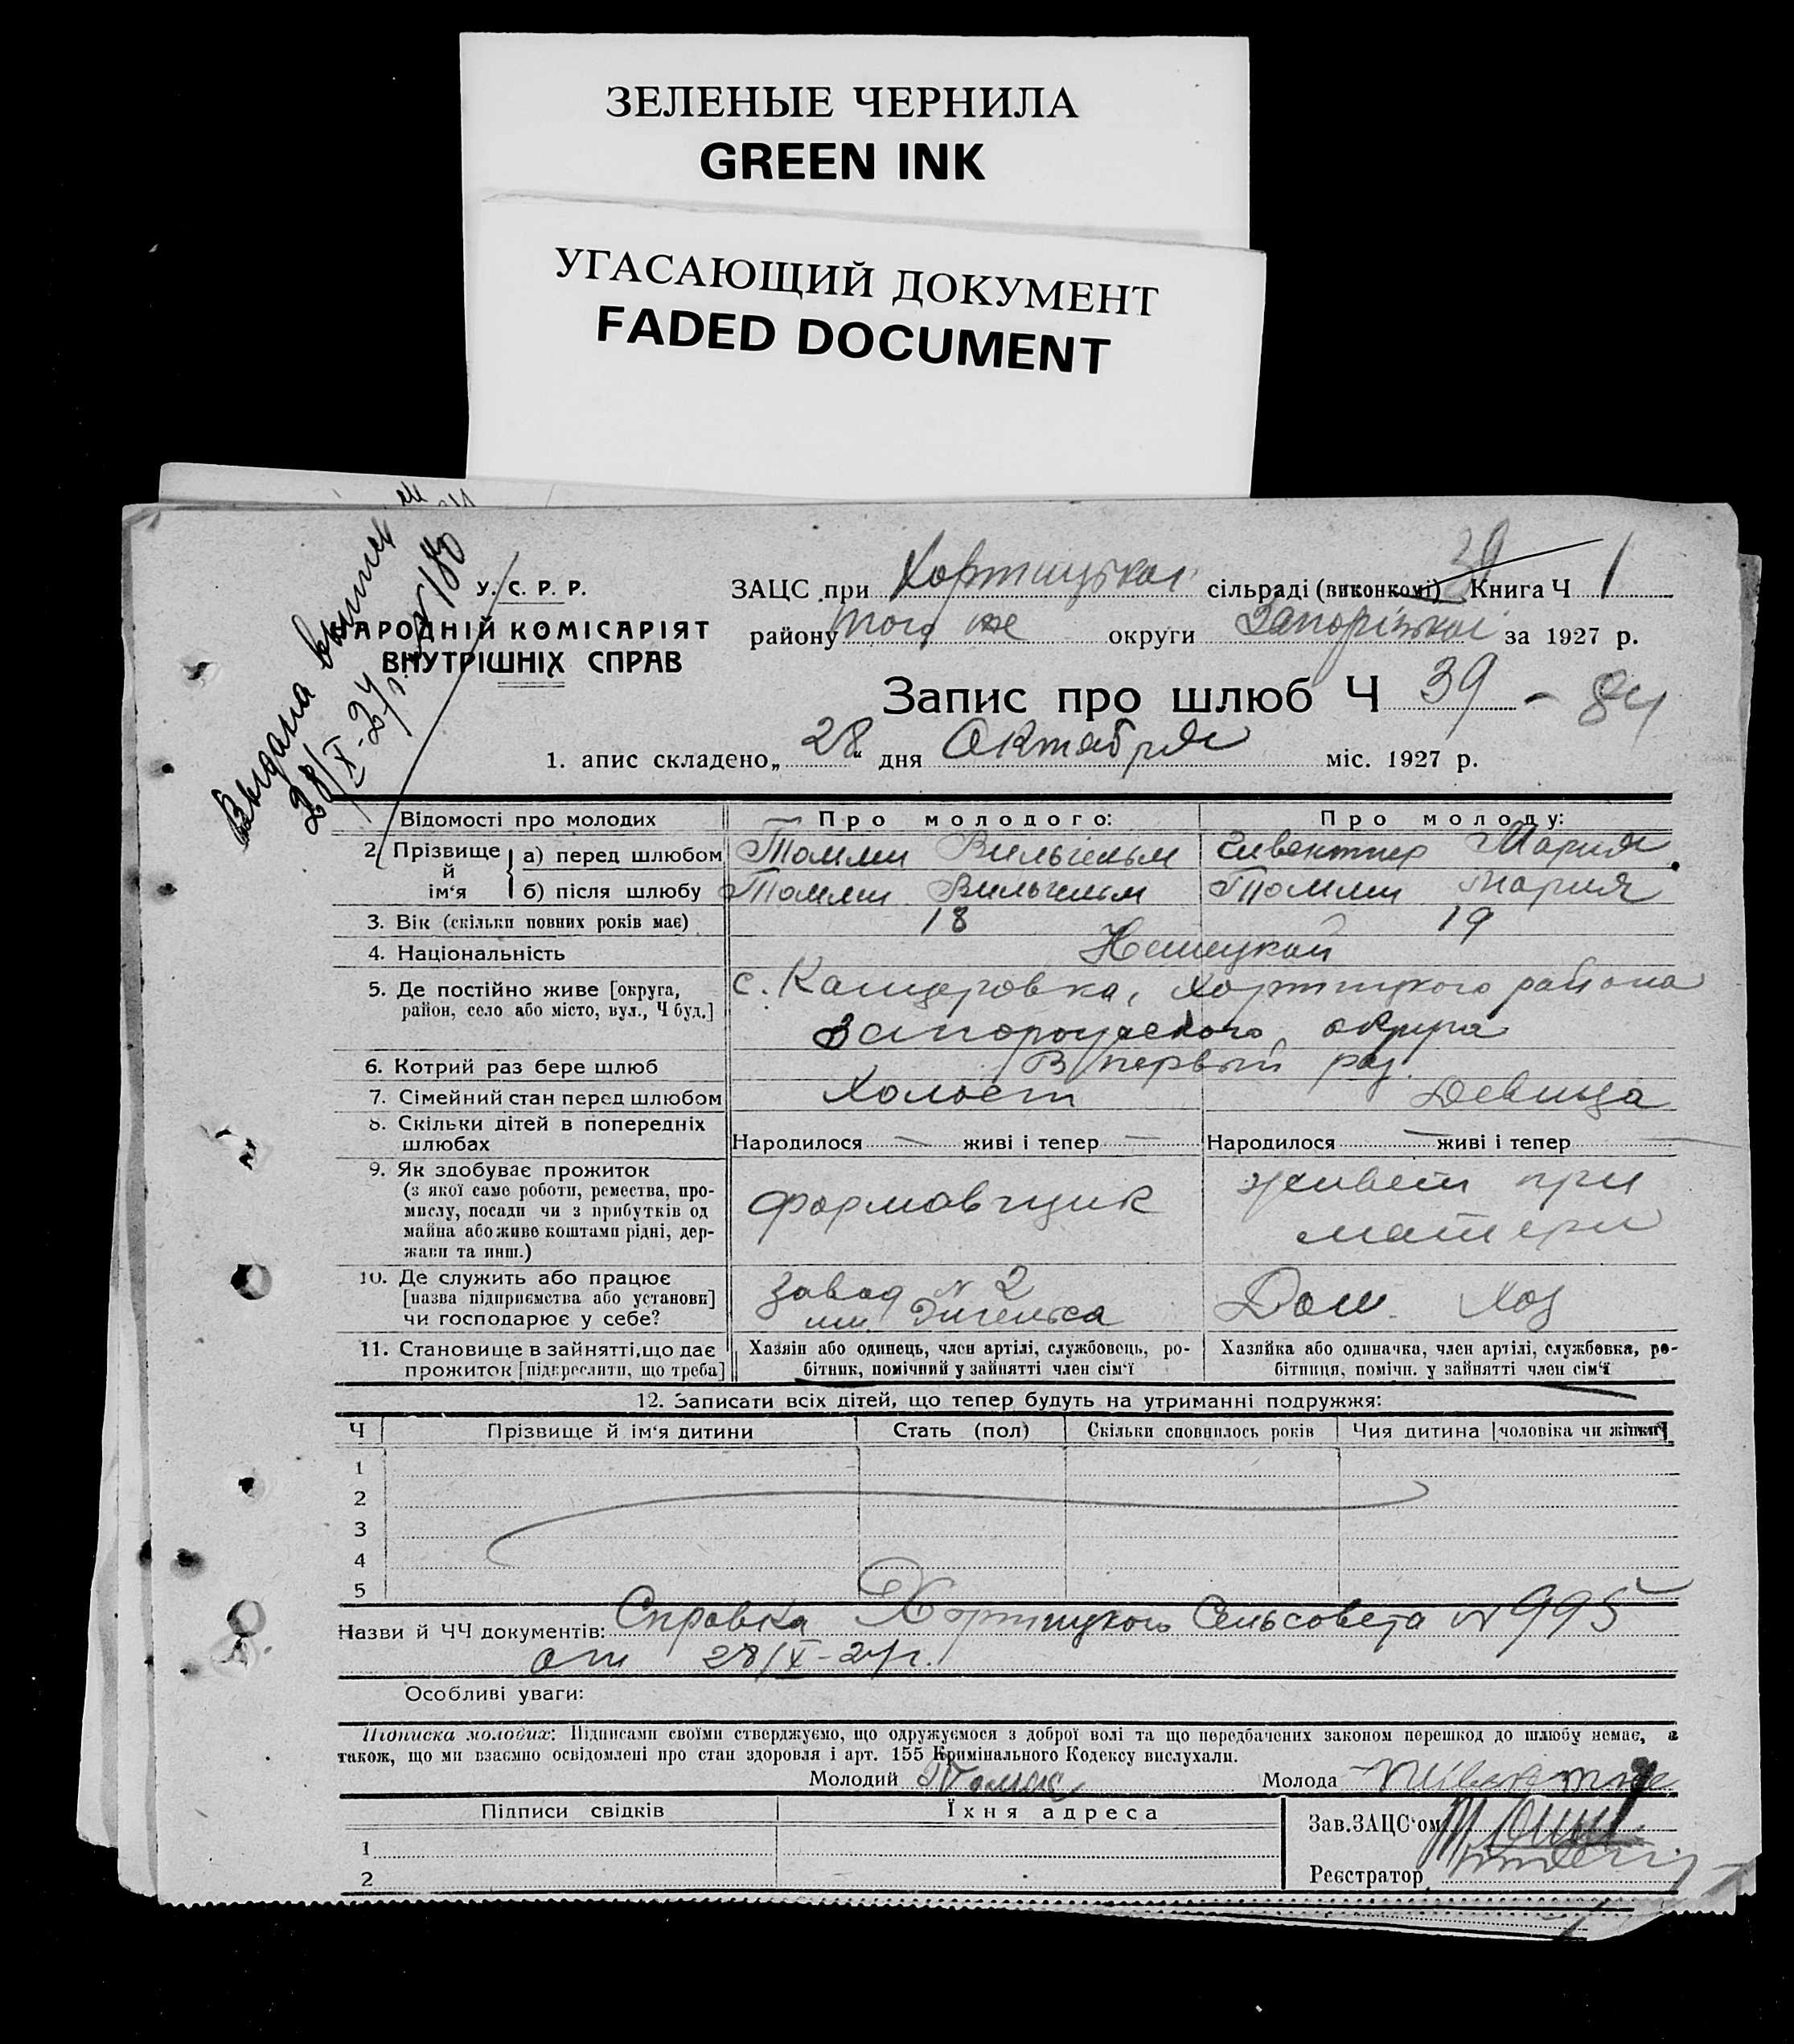 ЗЕЛЕНЫЕ ЧЕРНИЛА
GREEN INK
УГАСАЮЩИЙ ДОКУМЕНТ
FADED DOCUMENT
Выдана
У. С. Р. Р.
НАРОДНІЙ КОМІСАРІЯТ
ВНУТРІШНІХ СПРАВ
ЗАЦС при Хортицької сільраді (виконкомі) Книга Ч 1
району того же округи Запорізької за 1927 р.
Запис про шлюб Ч 39 - 84
1. апис складено „28“ дня Октября міс. 1927 р.
Відомості про молодих Про молодого: Про молоду:
2. Прізвище й ім‘я
а) перед шлюбом Вильгельм Мария
б) після шлюбу Вильгельм Мария
3. Вік (скільки повних років має) 18 19
4. Національність Немецкой
5. Де постійно живе [округа, с. Канцеровка, Хортицкого района
район, село або місто, вул., Ч буд.] Запорожского округа
6. Котрий раз бере шлюб В первый раз.
7. Сімейний стан перед шлюбом Холост Девица
8. Скільки дітей в попередніх
шлюбах Народилося — живі і тепер — Народилося — живі і тепер
9. Як здобуває прожиток
(з якої саме роботи, ремества, про-
мислу, посади чи з прибутків од
майна або живе коштами рідні, дер-
жави та инш.) формовщик живет при
матери
10. Де служить або працює
[назва підприємства або установи]
чи господарює у себе? Завод № 2
им. Энгельса Дом. Хоз
11. Становище в зайнятті, що дає Хазяїн або одинець, член артілі, службовець, ро- Хазяйка або одиначка, член артілі, службовка, ро-
прожиток [підкреслити, що треба] бітник, помічний у зайнятті член сім‘ї бітниця, помічн. у зайнятті член сім‘ї
12. Записати всіх дітей, що тепер будуть на утриманні подружжя:
Ч Прізвище й ім‘я дитини Стать (пол) Скільки сповнилось років Чия дитина [чоловіка чи жінки]
1
2
3
4
5
Назви й ЧЧ документів: Справка Хортицкого Сельсовета № 995
от 28/X-27г.
Особливі уваги:
Підписка молодих: Підписами своїми стверджуємо, що одружуємося з доброї волі та що передбачених законом перешкод до шлюбу немає, а
також, що ми взаємно освідомлені про стан здоровля і арт. 155 Кримінального Кодексу вислухали.
Молодий Молода
Підписи свідків Їхня адреса
1
2
Зав.ЗАЦС‘ом
Реєстратор